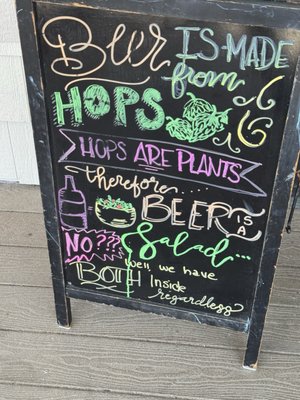 Beer IS MADE
from
HOPS
HOPS ARE PLANTS
therefore.....
BEER IS A
NO??? Salad...
Well we have
BOTH Inside
regardless